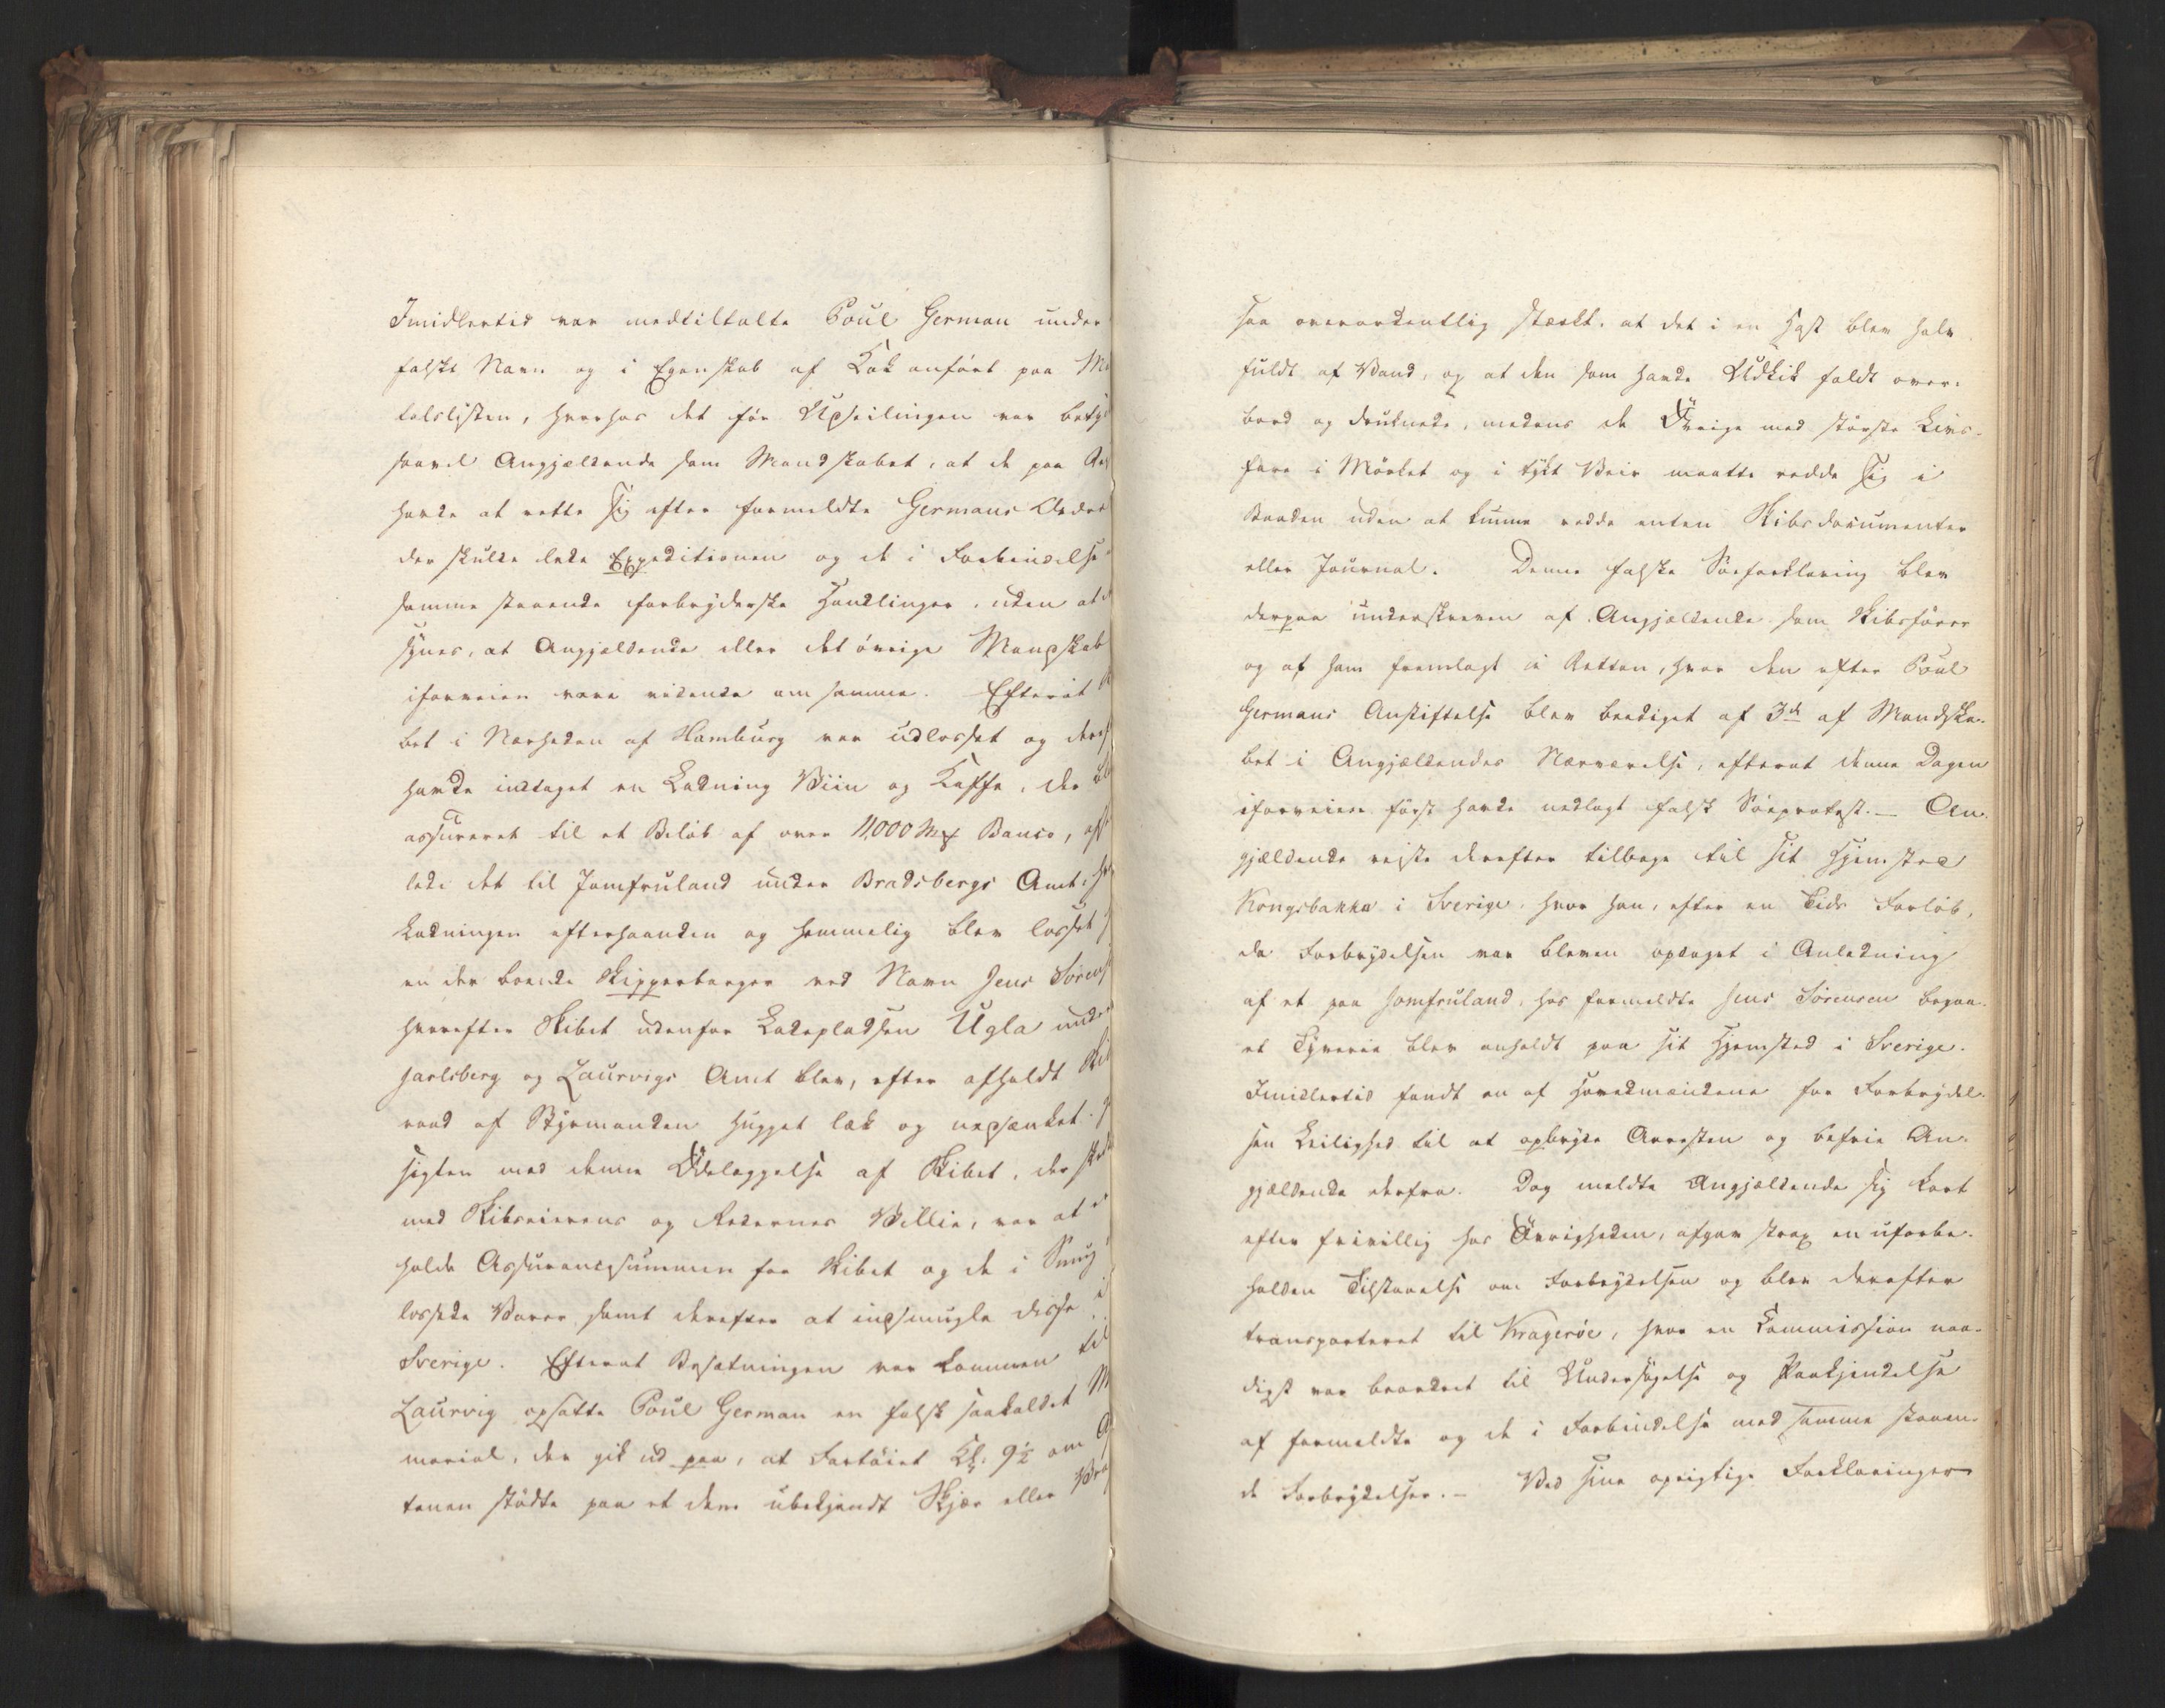 Imidlertid var medtiltalte Poul German under
falskt Navn og i Egenskab af Kok anført paa
talslisten, hvorhos det før Upseilingen var
saavel Angjældende som Mandskabet, at de paa
havde at rette sig efter formeldte Germans
der skulde lede Expeditionen og de i Forbindelse
samme staaende forbryderske Handlinger, uden at
synes, at Angjældende eller det øvrige Mandskab
iforveien vare vidende om samme. Efterat
bet i Nærheden af Hamburg var udlosset og
havde indtaget en Ladning Viin og Kaffe, der
assureret til et Beløb af over 11,000 Mk Banco,
lede det til Jomfruland under Bradsbergs Amt,
Ladningen efterhaanden og hemmelig blev losset
en der boende Skipperborger ved Navn Jens Sörens
hvorefter Skibet udenfor Ladepladsen Ugla under
Jarlsberg og Laurvigs Amt blev, efter afholdt
raad af Styrmanden hugget læk og nedsænket.
sigten med denne Ødelæggelse af Skibet, der
med Skibseierens og Redernes Villie, var at
holde Assurancesummen for Skibet og de i
lossede Varer samt derefter at indsmugle disse i
Sverige. Efterat Besætningen var kommen til
Laurvig opsatte Poul German en falsk saakaldet
morial, der gik ud paa, at Fartøiet Kl. 9½ om
tenen stødte paa et dem ubekjendt Skjær eller
saa overordentlig stærkt, at det i en Hast blev halv
fuldt af Vand, og at den som havde Udkik faldt over-
bord og druknede, medens de Øvrige med største Livs-
fare i Mørket og i tykt Veir maatte redde sig i
Baaden uden at kunne redde enten Skibsdocumenter
eller Journal. Denne falske Søeforklaring blev
derpaa underskreven af Angjældende som Skibsfører
og af ham fremlagt i Retten, hvor den efter Poul
Germans Anstiftelse blev beediget af 3de af Mandska-
bet i Angjældendes Nærværelse, efterat denne Dagen
iforveien først havde nedlagt falsk Søeprotest. — An-
gjældende reiste derefter tilbage til sit Hjemsted
Kongsbakka i Sverige, hvor han, efter en Tids Forløb,
da Forbrydelsen var bleven opdaget i Anledning
af et paa Jomfruland, hos formeldte Jens Sörensen begaa-
et Tyverie blev anholdt paa sit Hjemsted i Sverige.
Imidlertid fandt en af Hovedmændene for Forbrydel-
sen Leilighed til at opbryde Arresten og befrie An-
gjældende derfra. Dog meldte Angjældende sig kort
efter frivillig hos Øvrigheden, afgav strax en uforbe-
holden Tilstaaelse om Forbrydelsen og blev derefter
transporteret til Kragerøe, hvor en Commission naa-
digst var beordret til Undersøgelse og Paakjendelse
af formeldte og de i Forbindelse med samme staaen-
de Forbrydelser. — Ved sine oprigtige Forklaringer